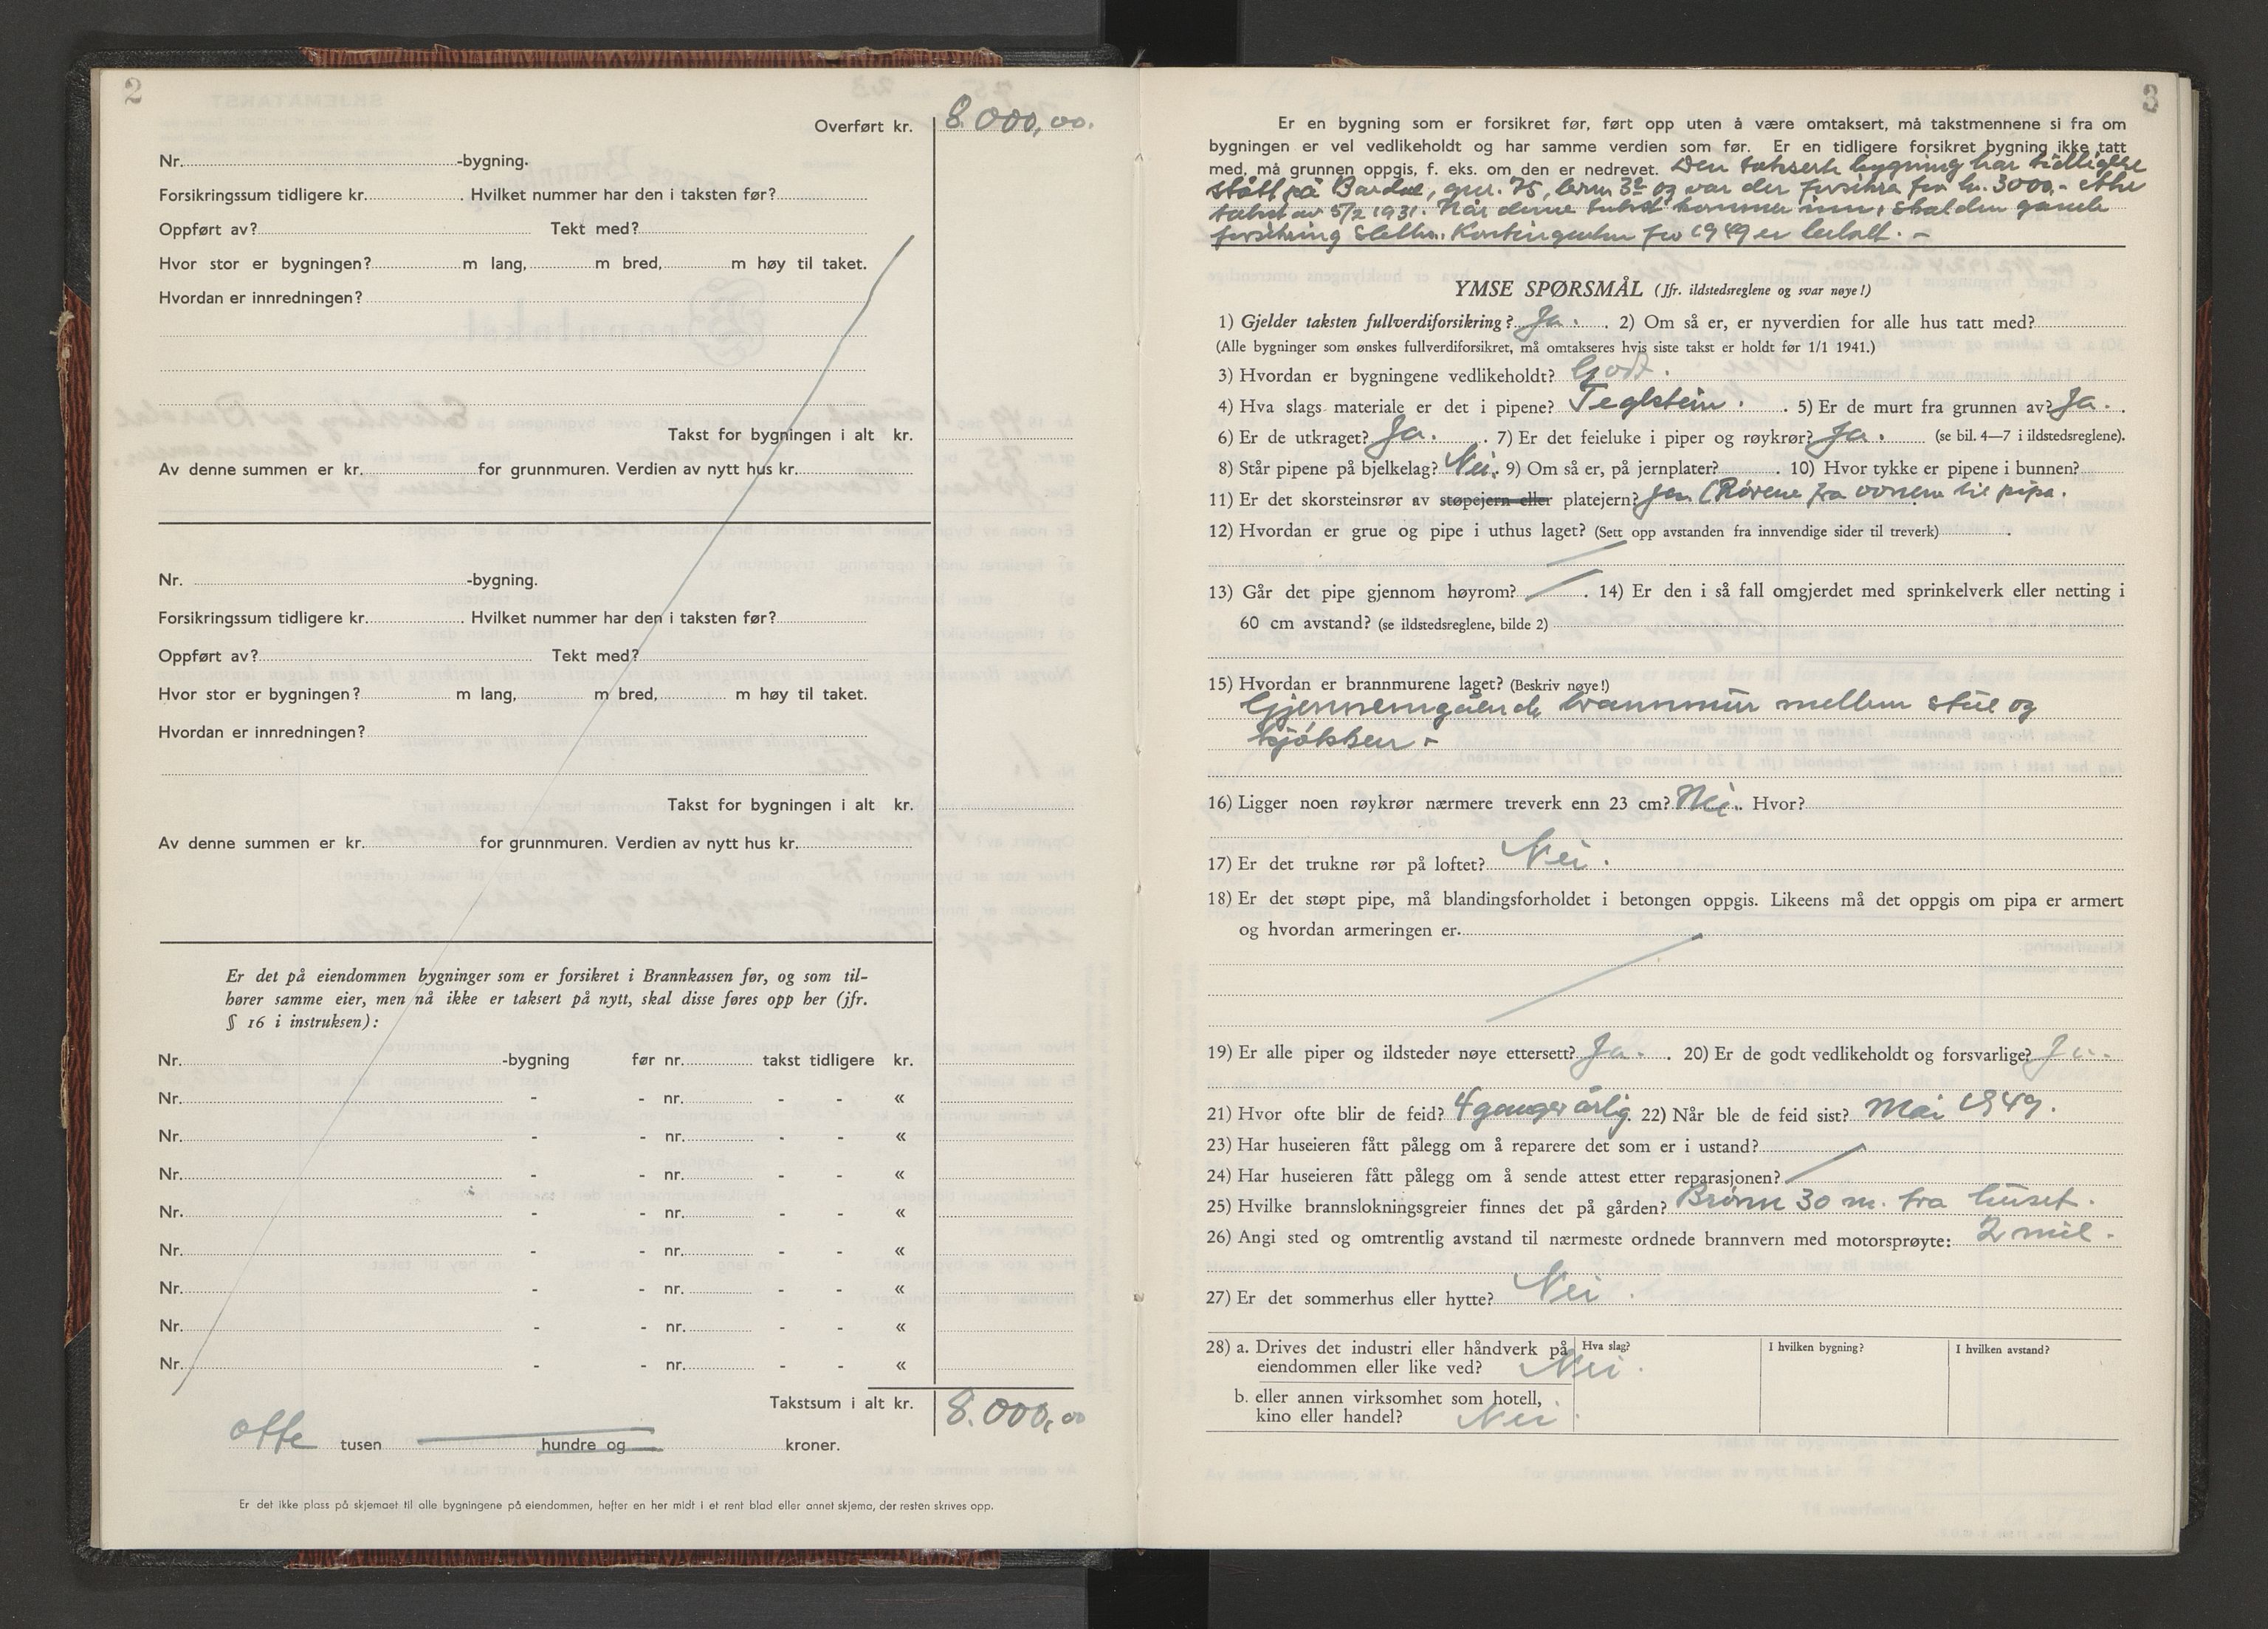 2
Overført kr. 8.000,00.
Nr. -bygning.
Forsikringssum tidligere kr. . Hvilket nummer har den i taksten før?
Oppført av? Tekt med?
Hvor stor er bygningen? m lang, m bred, m høy til taket.
Hvordan er innredningen?
Takst for bygningen i alt kr.
Av denne summen er kr. for grunnmuren. Verdien av nytt hus kr.
Nr. -bygning.
Forsikringssum tidligere kr. . Hvilket nummer har den i taksten før?
Oppført av? Tekt med?
Hvor stor er bygningen? m lang, m bred, m høy til taket.
Hvordan er innredningen?
Takst for bygningen i alt kr.
Av denne summen er kr. for grunnmuren. Verdien av nytt hus kr.
Er det på eiendommen bygninger som er forsikret i Brannkassen før, og som til-
hører samme eier, men nå ikke er taksert på nytt, skal disse føres opp her (jfr.
§ 16 i instruksen):
Nr. -bygning før nr. takst tidligere kr.
Nr. - - nr. - - «
Nr. - - nr. - - «
Nr. - - nr. - - «
Nr. - - nr. - - «
Nr. - - nr. - - «
Nr. - - nr. - - «
Nr. - - nr. - - «
Nr. - - nr. - - «
Takstsum i alt kr. 8.000,00
otte tusen hundre og kroner.
Er det ikke plass på skjemaet til alle bygningene på eiendommen, hefter en her midt i et rent blad eller annet skjema, der resten skrives opp.
3
Er en bygning som er forsikret før, ført opp uten å være omtaksert, må takstmennene si fra om
bygningen er vel vedlikeholdt og har samme verdien som før. Er en tidligere forsikret bygning ikke tatt
med, må grunnen oppgis, f. eks. om den er nedrevet. Den takserte bygning har tidligere
stått på Bardal, gnr. 75, brnr. 32 og var der forsikra for kr. 3000.- etter
takst av 5/2 1931. Når denne takst kommer inn, skal den gamle
forsikring slettes. Kontingenten for 1949 er betalt. -
YMSE SPØRSMÅL (Jfr. ildstedsreglene og svar nøye!)
1) Gjelder taksten fullverdiforsikring? Ja. . 2) Om så er, er nyverdien for alle hus tatt med?
(Alle bygninger som ønskes fullverdiforsikret, må omtakseres hvis siste takst er holdt før 1/1 1941.)
3) Hvordan er bygningene vedlikeholdt? Godt.
4) Hva slags materiale er det i pipene? Teglstein. . 5) Er de murt fra grunnen av? Ja. .
6) Er de utkraget? Ja. . 7) Er det feieluke i piper og røykrør? Ja. (se bil. 4—7 i ildstedsreglene).
8) Står pipene på bjelkelag? Nei. 9) Om så er, på jernplater? . 10) Hvor tykke er pipene i bunnen?
11) Er det skorsteinsrør av støpejern eller platejern? Jern (Rörene fra ovnene til pipa.
12) Hvordan er grue og pipe i uthus laget? (Sett opp avstanden fra innvendige sider til treverk) .
13) Går det pipe gjennom høyrom? . 14) Er den i så fall omgjerdet med sprinkelverk eller netting i
60 cm avstand? (se ildstedsreglene, bilde 2)
15) Hvordan er brannmurene laget? (Beskriv nøye!)
Gjennemgående brannmur mellem stue og
kjökken -
16) Ligger noen røykrør nærmere treverk enn 23 cm? Nei. Hvor?
17) Er det trukne rør på loftet? Nei.
18) Er det støpt pipe, må blandingsforholdet i betongen oppgis. Likeens må det oppgis om pipa er armert
og hvordan armeringen er.
19) Er alle piper og ildsteder nøye ettersett? Ja. . 20) Er de godt vedlikeholdt og forsvarlige? Ja.
21) Hvor ofte blir de feid? 4 ganger årlig. 22) Når ble de feid sist? Mai 1949.
23) Har huseieren fått pålegg om å reparere det som er i ustand?
24) Har huseieren fått pålegg om å sende attest etter reparasjonen?
25) Hvilke brannslokningsgreier finnes det på gården? Brönn 30 m. fra huset.
26) Angi sted og omtrentlig avstand til nærmeste ordnede brannvern med motorsprøyte: 2 mil.
27) Er det sommerhus eller hytte? Nei.
28) a. Drives det industri eller håndverk på Hva slag? I hvilken bygning? I hvilken avstand?
eiendommen eller like ved? Nei.
b. eller annen virksomhet som hotell,
kino eller handel? Nei.